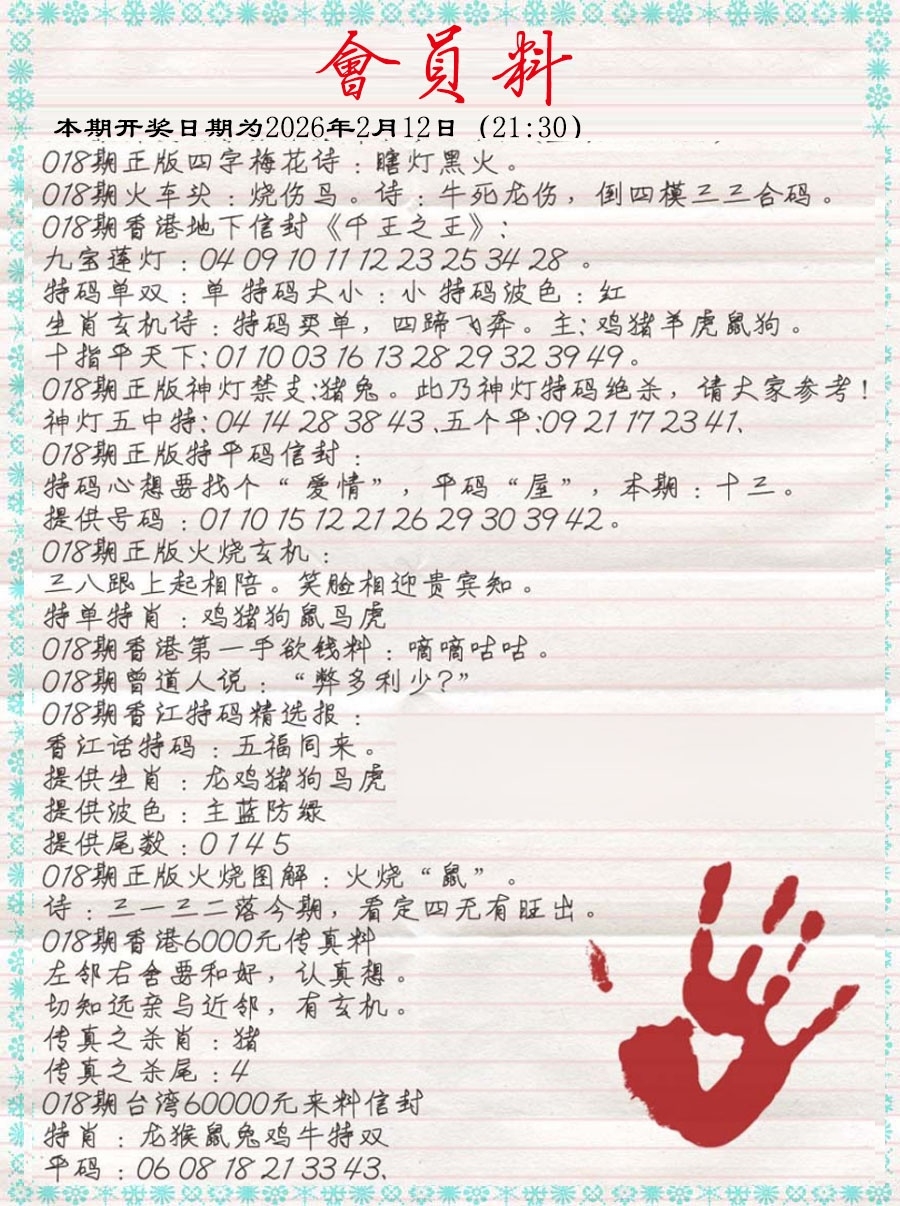 會員料
本期开奖日期为2026年2月12日（21:30）
018期正版四字梅花诗：瞎灯黑火。
018期火车头：烧伤鸟。诗：牛死龙伤，倒四模三三合码。
018期香港地下信封《千王之王》:
九宝莲灯：04 09 10 11 12 23 25 34 28 。
特码单双：单 特码大小：小 特码波色：红
生肖玄机诗：特码买单，四蹄飞奔。主: 鸡猪羊虎鼠狗。
十指平天下: 01 10 03 16 13 28 29 32 39 49。
018期正版神灯禁支:猪兔。此乃神灯特码绝杀，请大家参考！
神灯五中特: 04 14 28 38 43 、五个平:09 21 17 23 41、
018期正版特平码信封：
特码心想要找个“爱情”，平码“屋”，本期：十三。
提供号码：01 10 15 12 21 26 29 30 39 42。
018期正版火烧玄机：
三八跟上起相陪。笑脸相迎贵宾知。
特单特肖：鸡猪狗鼠马虎
018期香港第一手欲钱料：嘀嘀咕咕。
018期曾道人说：“弊多利少?”
018期香江特码精选报：
香江话特码：五福同来。
提供生肖：龙鸡猪狗马虎
提供波色：主蓝防绿
提供尾数：0 1 4 5
018期正版火烧图解：火烧“鼠”。
诗：三一三二落今期，看定四无有旺出。
018期香港6000元传真料
左邻右舍要和好，认真想。
切知远亲与近邻，有玄机。
传真之杀肖：猪
传真之杀尾：4
018期台湾60000元来料信封
特肖：龙猴鼠兔鸡牛特双
平码：06 08 18 21 33 43、